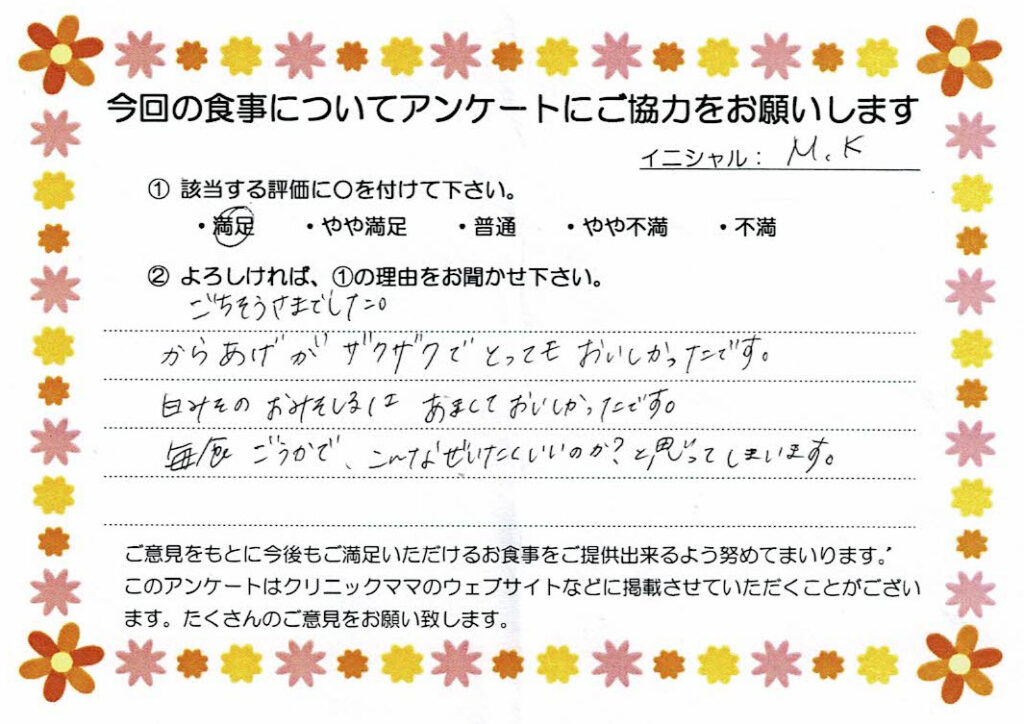 今回の食事についてアンケートにご協力をお願いします
イニシャル： M.K
① 該当する評価に〇を付けて下さい。
・満足 ・やや満足 ・普通 ・やや不満 ・不満
② よろしければ、①の理由をお聞かせ下さい。
ごちそうさまでした。
からあげが ザクザクで とっても おいしかったです。
白みその おみそしるは あまくて おいしかったです。
毎度 ごうかで、こんなぜいたくしいいのか？と思ってしまいます。
ご意見をもとに今後もご満足いただけるお食事をご提供出来るよう努めてまいります。
このアンケートはクリニックママのウェブサイトなどに掲載させていただくことがござい
ます。たくさんのご意見をお願い致します。